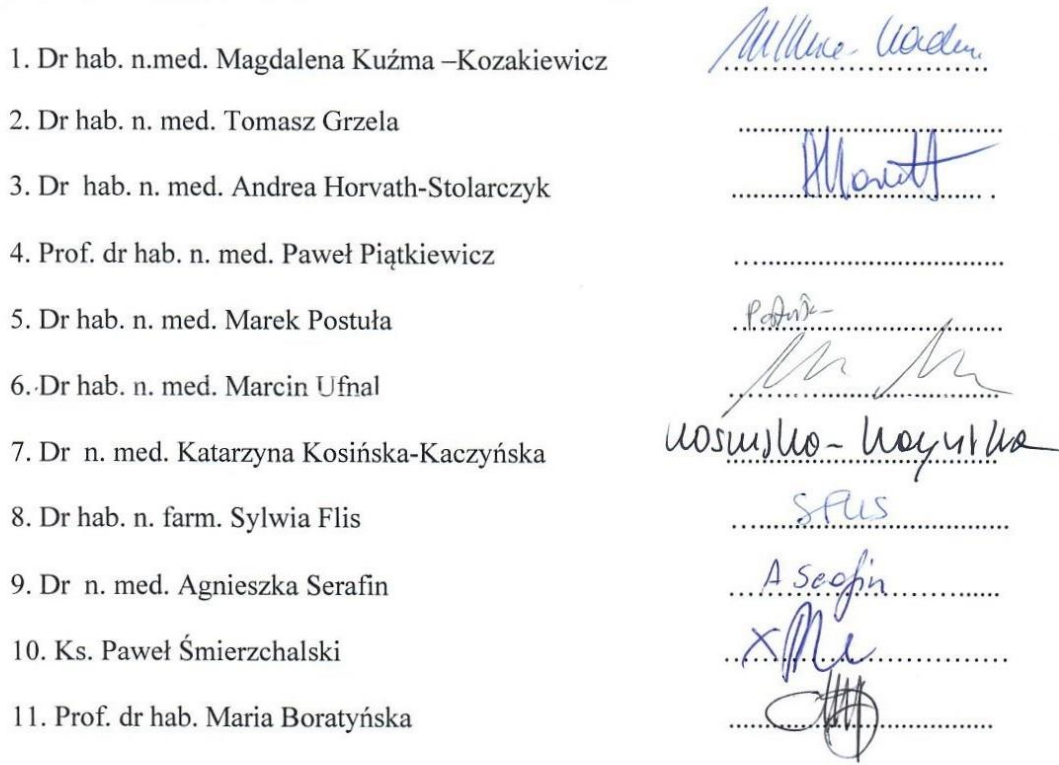 1. Dr hab. n.med. Magdalena Kuźma –Kozakiewicz
2. Dr hab. n. med. Tomasz Grzela
3. Dr hab. n. med. Andrea Horvath-Stolarczyk
4. Prof. dr hab. n. med. Paweł Piątkiewicz
5. Dr hab. n. med. Marek Postuła
6. Dr hab. n. med. Marcin Ufnal
7. Dr n. med. Katarzyna Kosińska-Kaczyńska
8. Dr hab. n. farm. Sylwia Flis SFlis
9. Dr n. med. Agnieszka Serafin A Serafin
10. Ks. Paweł Śmierzchalski
11. Prof. dr hab. Maria Boratyńska